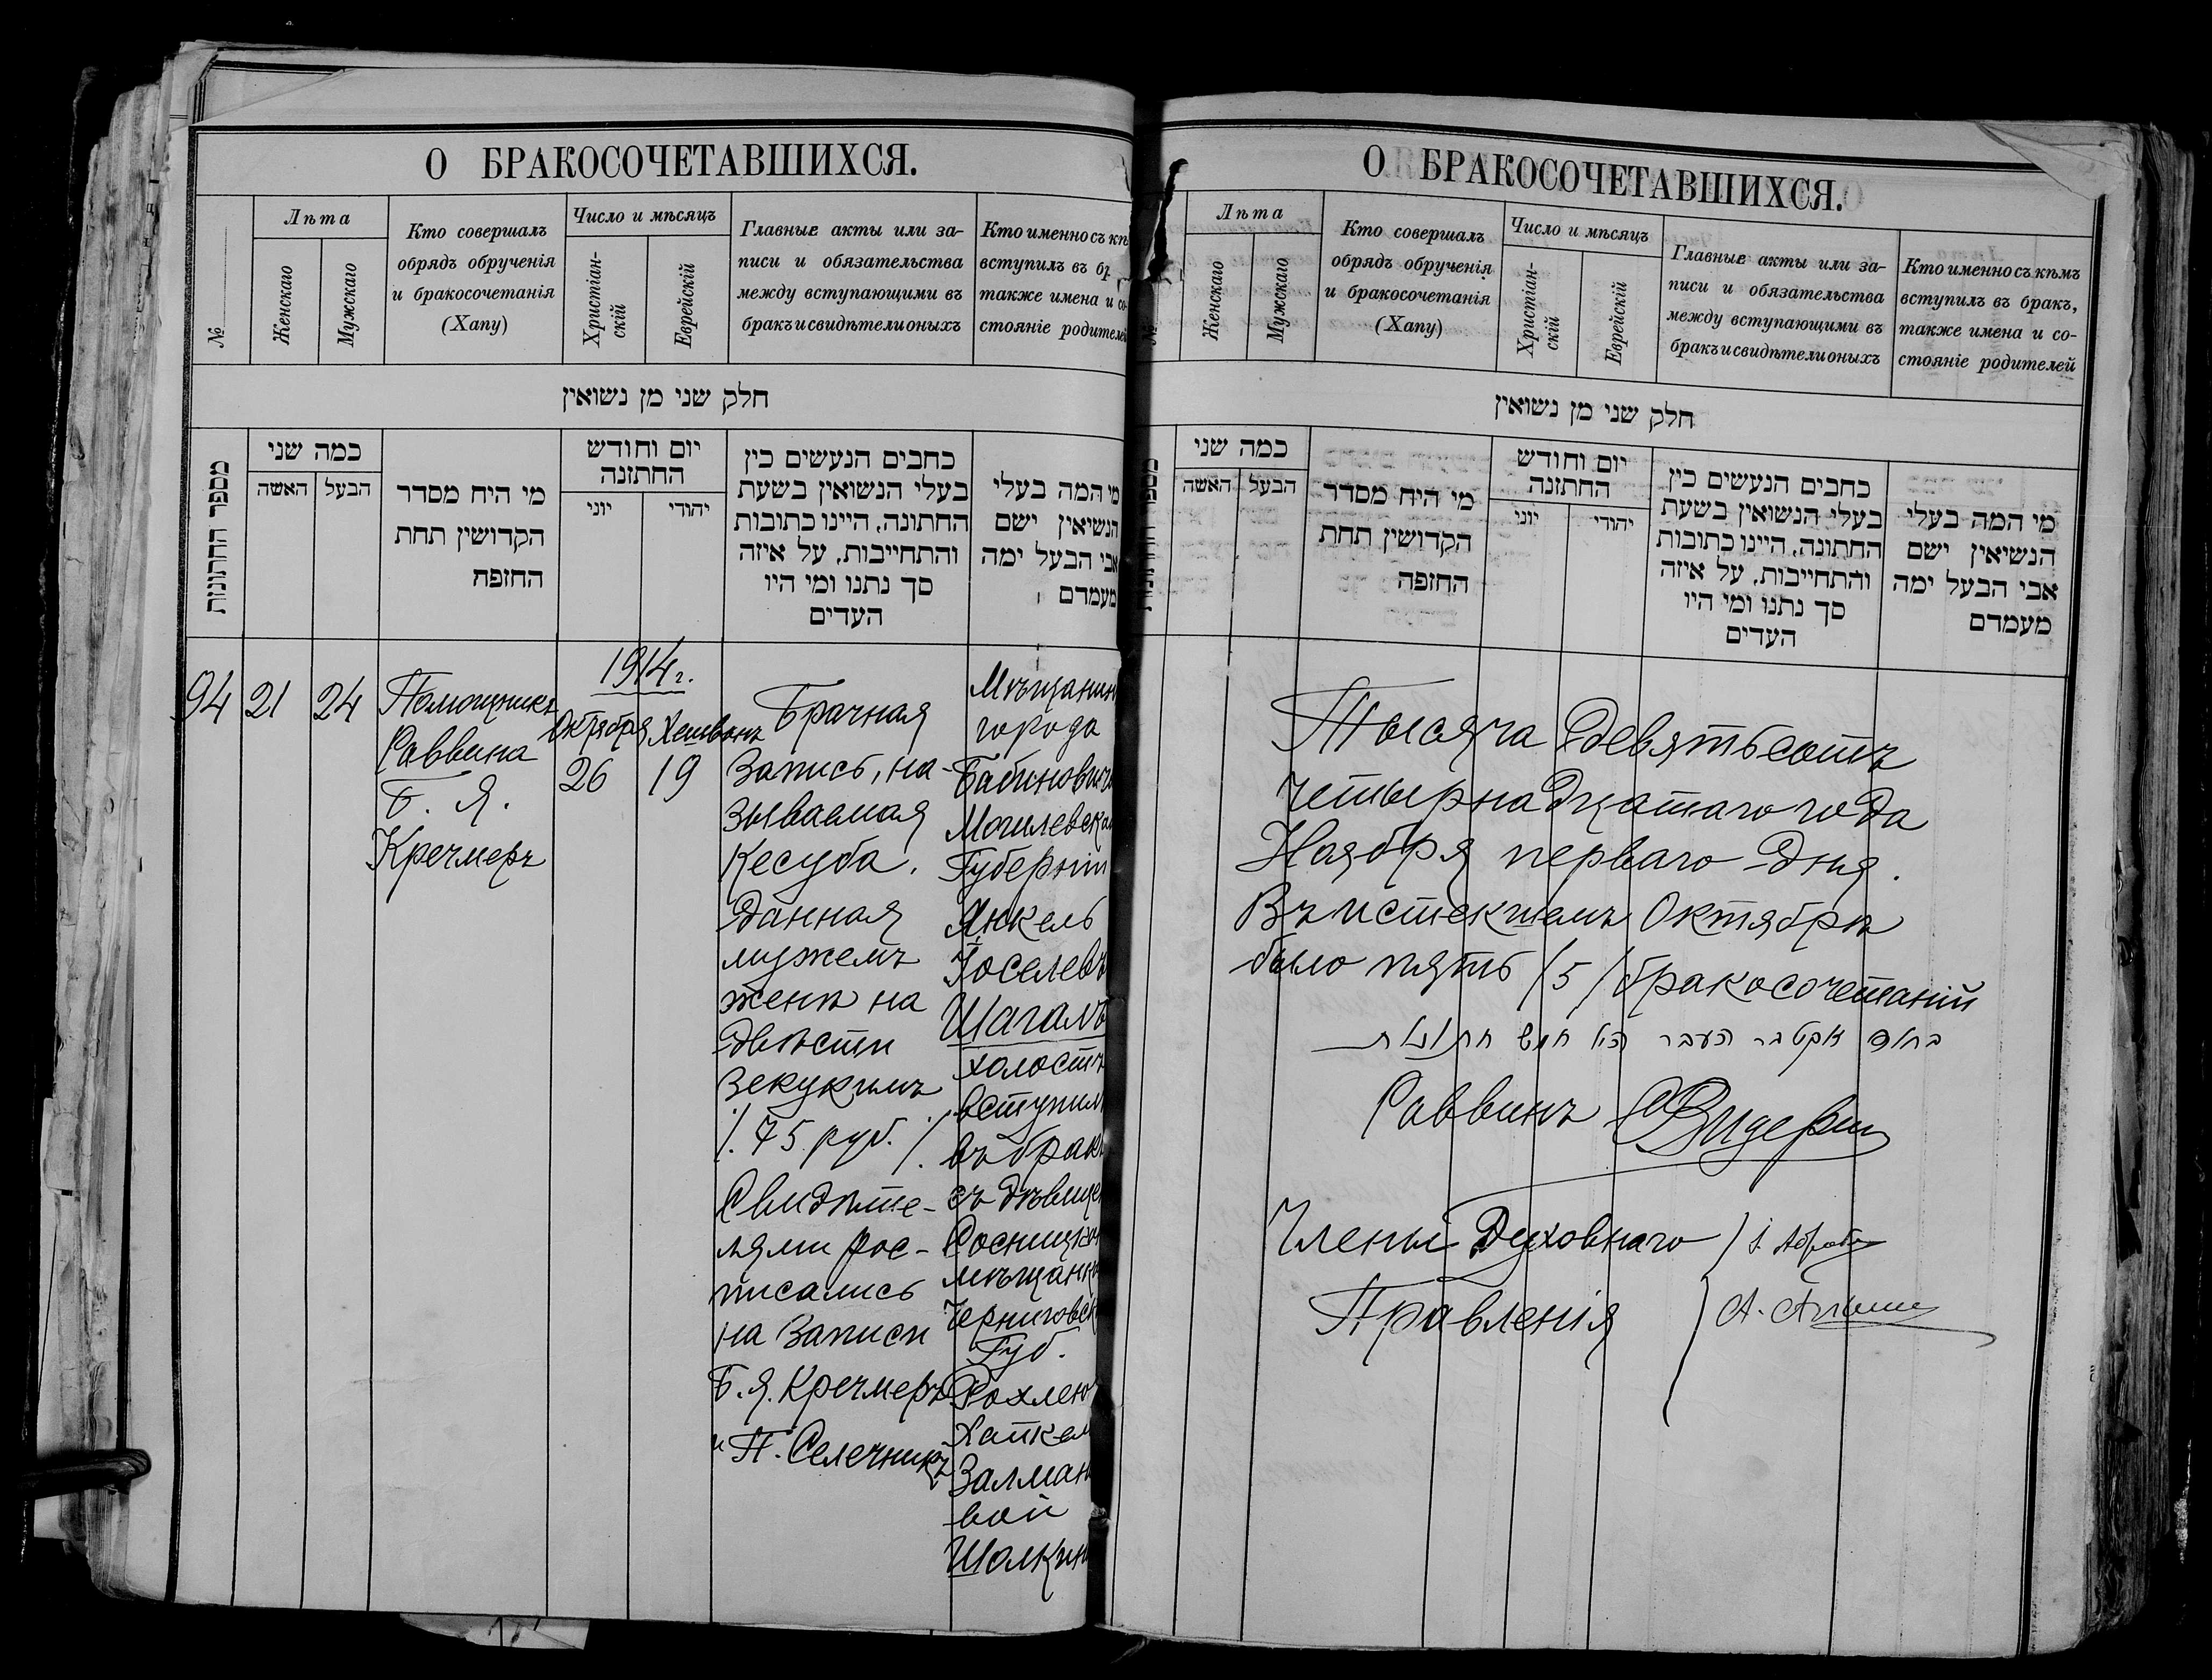 О БРАКОСОЧЕТАВШИХСЯ.
№
Лѣта
Женскаго
Мужскаго
Кто совершалъ
обрядъ обрученія
и бракосочетанія
(Хапу)
Число и мѣсяцъ
Христіан-
скій
Еврейскій
Главные акты или за-
писи и обязательства
между вступающими въ
бракъ и свидѣтели оныхъ
Кто именно съ кѣ
вступилъ въ бр
также имена и со
стояніе родителей
חלק שני מן נשואין
מספר החתונות
כמה שני
האשה
הבעל
מי היח מסדר
הקדושין תחת
החזפח
יום וחודש
החתזנה
יוני
יהודי
כחבים הנעשים כין
בעלי הנשואין בשעת
החתונה, היינו כתובות
והתחייבות, על איזה
סך נתנו ומי היו
העדים
מי המה בעלי
הנשיאין ישם
אבי הבעל ימה
מעמדם
94
21
24
Помощникъ
Раввина
Б. Я.
Кречмеръ
1914 г.
Октября
26
Хешванъ
19
Брачная
Запись, на-
зываемая
Кесуба.
Данная
мужемъ
женѣ на
двѣсти
Зекукимъ
/. 75 руб. /.
Свидѣте-
лями рос-
писались
на Записи
Б. Я. Кречмеръ
и П. Селечникъ
Мѣщанин
города
Бабиновичи
Могилевской
Губерніи
Янкель
Іоселевъ
Шагалъ
холостъ
вступилъ
въ бракъ
съ дѣвицей
Сосницкой
мѣщанкой
Черниговск
Губ.
Рохлею
Хайкел
Залман
вой
Шалкин
О БРАКОСОЧЕТАВШИХСЯ.
№
Лѣта
Женскаго
Мужскаго
Кто совершалъ
обрядъ обрученія
и бракосочетанія
(Хапу)
Число и мѣсяцъ
Христіан-
скій
Еврейскій
Главные акты или за-
писи и обязательства
между вступающими въ
бракъ и свидѣтели оныхъ
Кто именно съ кѣмъ
вступилъ въ бракъ,
также имена и со-
стояніе родителей
חלק שני מן נשואין
כמה שני
האשה
הבעל
מי היח מסדר
הקדושין תחת
החזפה
יום וחודש
החתזנה
יוני
יהודי
כחבים הנעשים כין
בעלי הנשואין בשעת
החתונה, היינו כתובות
והתחייבות, על איזה
סך נתנו ומי היו
העדים
מי המה בעלי
הנשיאין ישם
אבי הבעל ימה
מעמדם
Тысяча девятьсотъ
четырнадцатаго года
Ноября перваго дня.
Въ истекшемъ Октябрѣ
было пять /5/ бракосочетаній
בחודש אקטבר העבר היו חמש חתונות
Раввинъ
Члены Духовнаго
Правленія